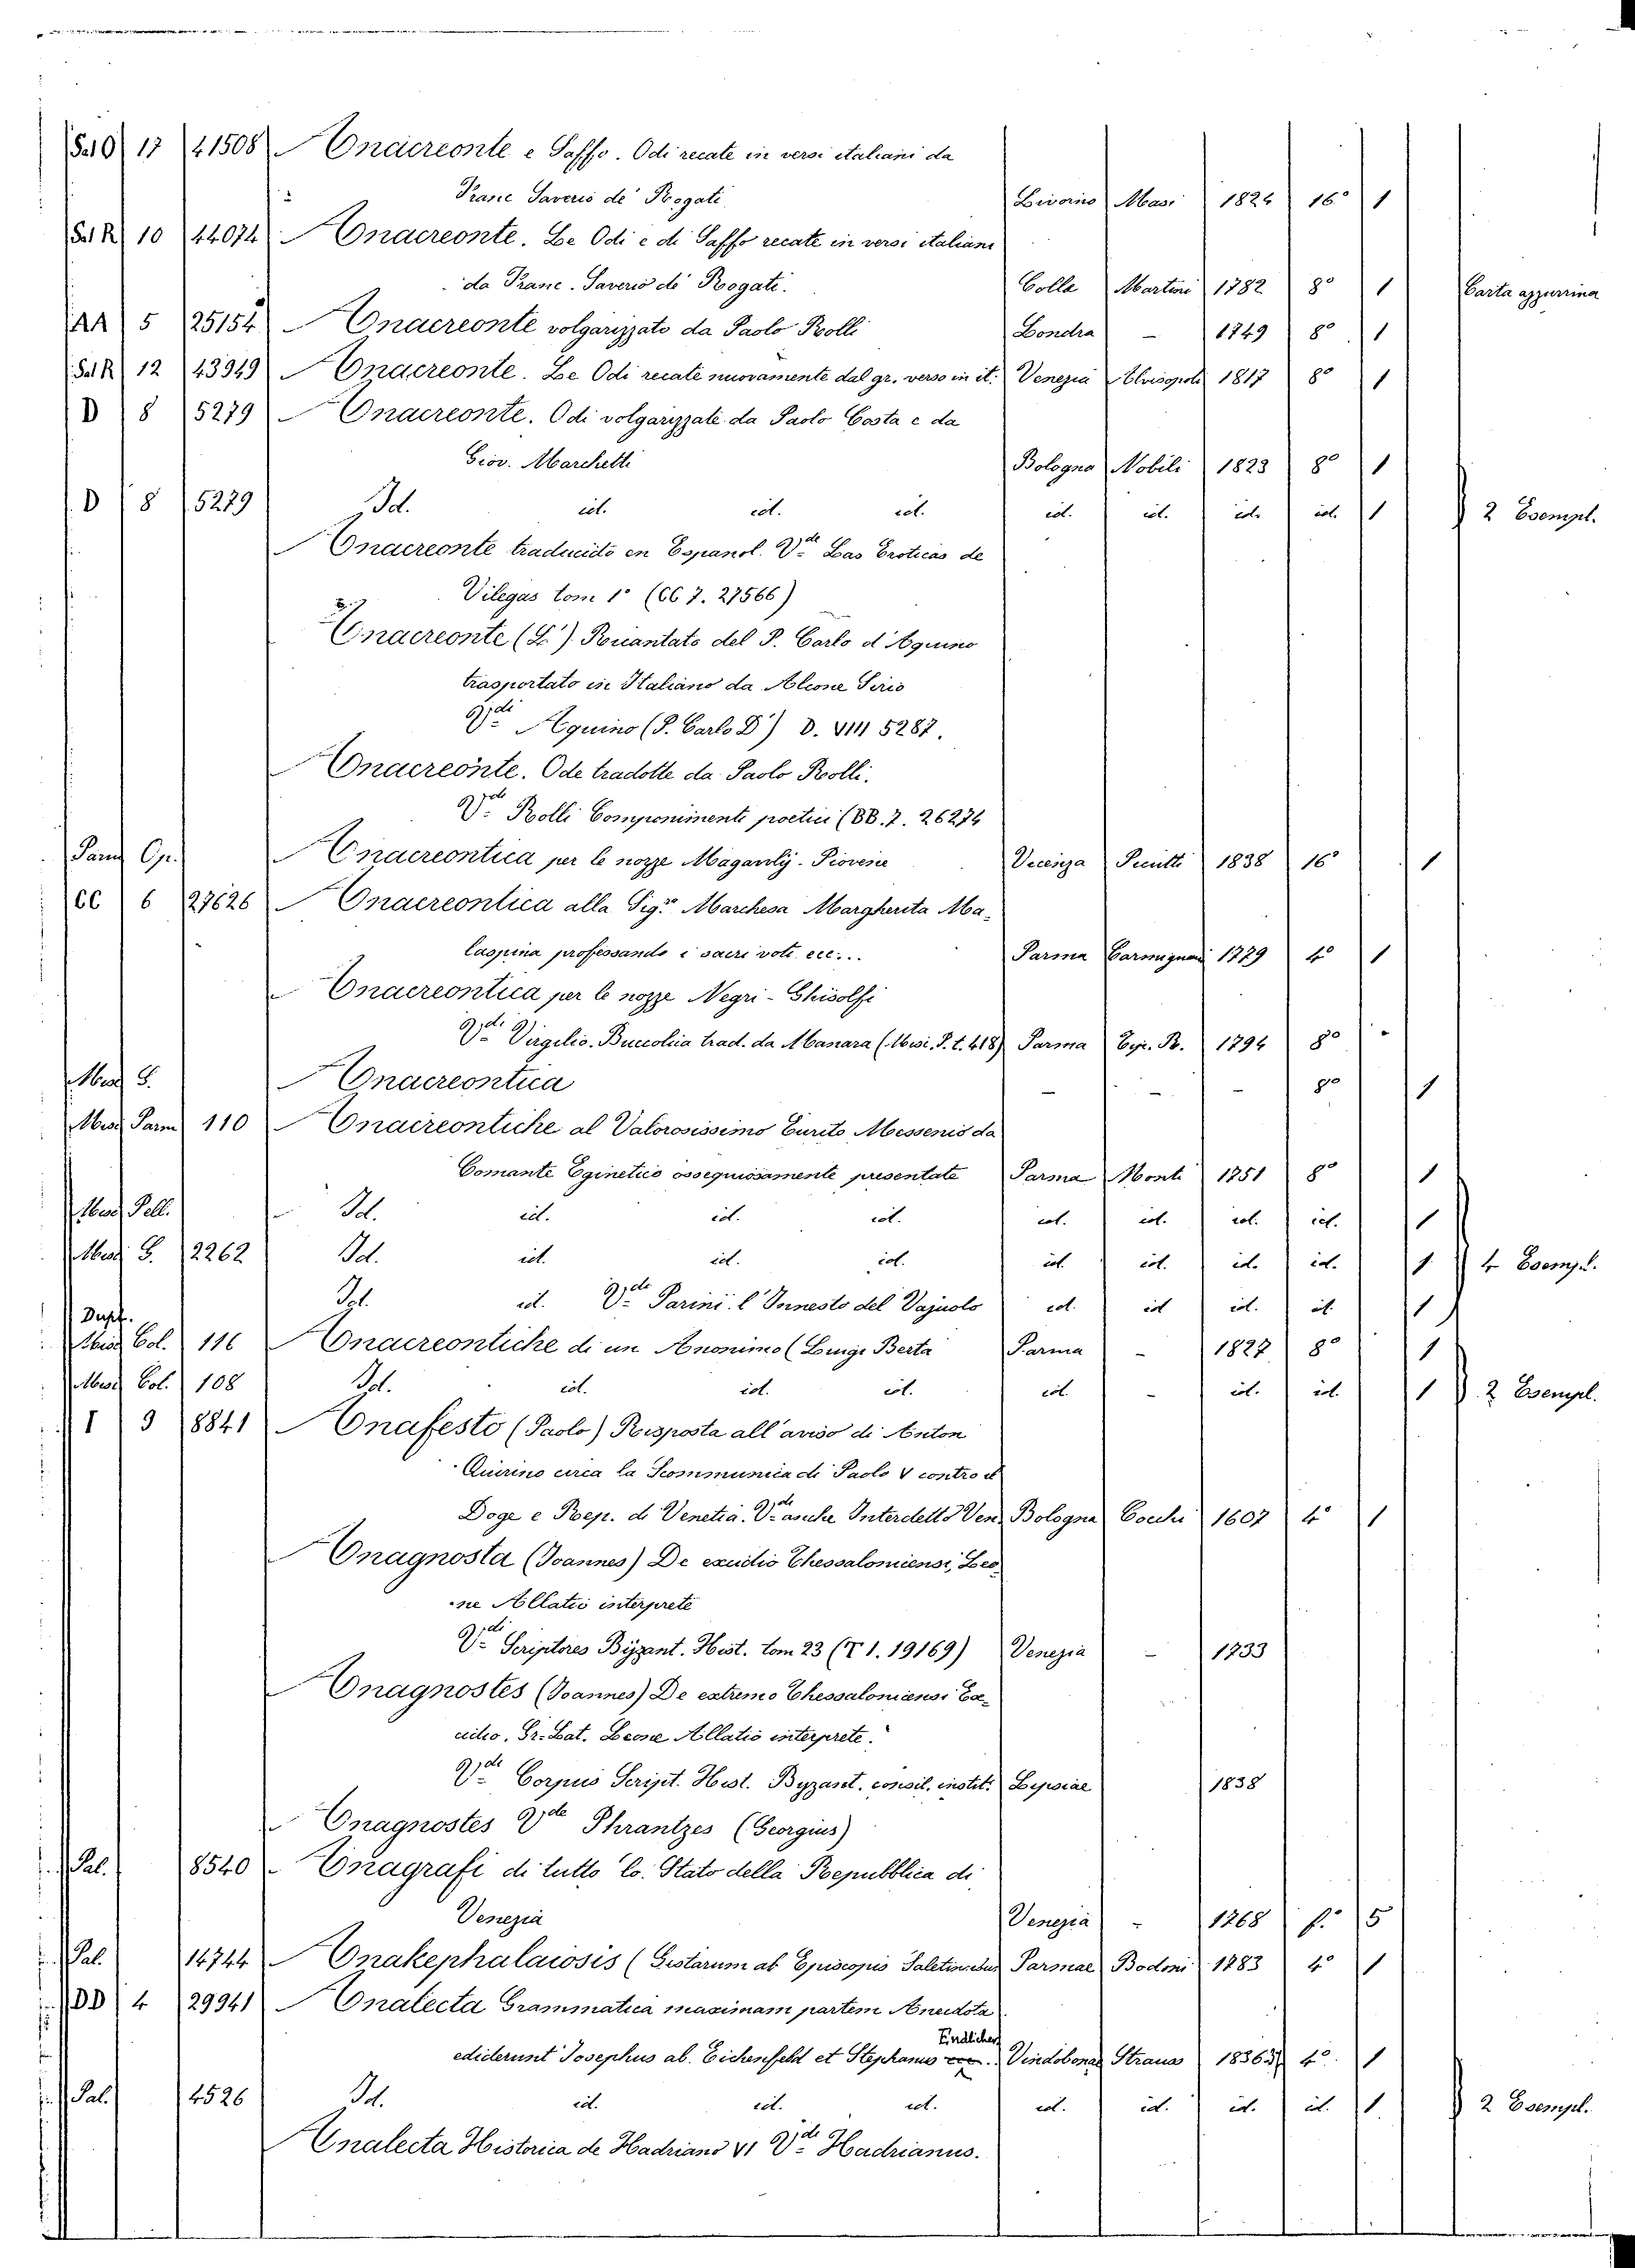 Sal Q 17 41508 Anacreonte e Saffo. Odi recate in versi italiani da
Franc Saverio de' Rogati Livorno Masi 1824 16° 1
Sal R 10 44074 Anacreonte. Le Odi e di Saffo recate in versi italiani
da Franc. Saverio de' Rogati. Colle Martini 1782 8° 1 Carta azzurrina
AA 5 25154 Anacreonte volgarizzato da Paolo Rolli Londra - 1749 8° 1
Sal R 12 43949 Anacreonte. Le Odi recate nuovamente dal gr. verso in it. Venezia Alvisopoli 1817 8° 1
D 8 5279 Anacreonte. Odi volgarizzate da Paolo Costa e da
Giov. Marchetti Bologna Nobili 1823 8° 1
D 8 5279 Id. id. id. id. id. id. id. id. 1 2 Esempl.
Anacreonte traducido en Espanol. Vde Las Eroticas de
Vilegas tom 1° (CC 7. 27566)
Anacreonte (L') Ricantato del P. Carlo d'Aquino
trasportato in Italiano da Alcone Sirio
Vdi Aquino (P. Carlo D') D. VIII 5287.
Anacreonte. Ode tradotte da Paolo Rolli.
Vde Rolli Componimenti poetici (BB. 7. 26274
Anacreontica per le nozze Magawly-Piovene Vicenza Picutti 1838 16° 1
CC 6 27626 Anacreontica alla Sigra Marchesa Margherita Ma-
laspina professando i sacri voti ecc... Parma Carmignani 1779 4° 1
Anacreontica per le nozze Negri-Ghisolfi
Vdi Virgilio. Buccolica trad. da Manara (Misc. P. t. 418) Parma Tip. R. 1794 8° -
Misc G. Anacreontica - - - 8° 1
Misc Parm 110 Anacreontiche al Valorosissimo Eurito Messenio da
Comante Eginetico ossequiosamente presentate Parma Monti 1751 8° 1
Misc Pell. Id. id. id. id. id. id. id. id. 1
Misc G. 2262 Id. id. id. id. id. id. id. id. 1 4 Esempl.
Id. id. Vde Parini. l'Innesto del Vajuolo id. id id. id. 1
Dupl.
Misc Col. 116 Anacreontiche di un Anonimo (Luigi Berta Parma - 1827 8° 1
Misc Col. 108 Id. id. id. id. id. - id. id. 1 2 Esempl.
I 9 8841 Anafesto (Paolo) Risposta all'aviso di Anton
Quirino circa la Scommunica di Paolo V contro il
Doge e Rep. di Venetia. Vde anche Interdetto Ven. Bologna Cocchi 1607 4° 1
Anagnosta (Joannes) De excidio Thessalonicensi, Leo-
ne Allatio interprete
Vdi Scriptores Byzant. Hist. tom 23 (T 1. 19169) Venezia - 1733
Anagnostes (Joannes) De extremo Thessalonicensi Ex-
cidio. Gr. Lat. Leone Allatio interprete.
Vde Corpus Script. Hist. Byzant. consil. instit. Lipsiae 1838
Anagnostes Vde Phrantzes (Georgius)
Pal. 8540 Anagrafi di tutto lo Stato della Repubblica di
Venezia Venezia - 1768 f.° 5
Pal. 14744 Anakephalaiosis (Gestarum ab Episcopis Parmae Bodoni 1783 4° 1
DD 4 29941 Analecta Grammatica maximam partem Anecdota
Endlicher
ediderunt Josephus ab. Eichenfeld et Stephanus Vindobonae Strauss 1836 4° 1
Pal. 4526 Id. id. id. id. id. id. id. id. 1 2 Esempl.
Analecta Historica de Hadriano VI Vde Hadrianus.